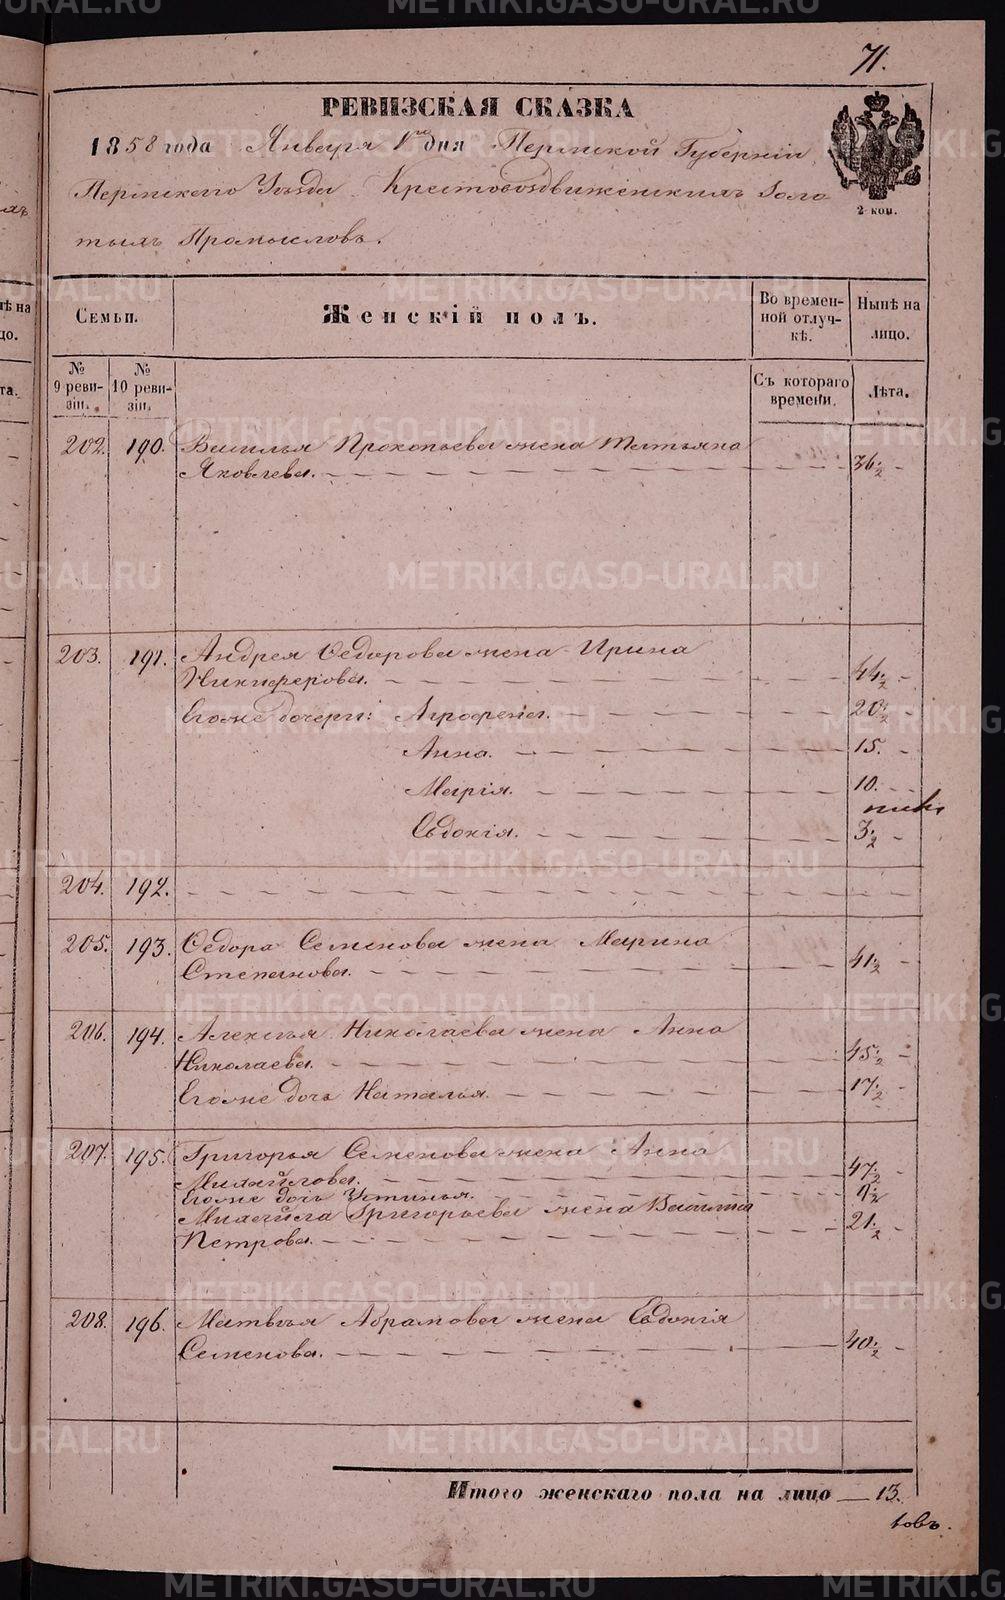 71.
РЕВИЗСКАЯ СКАЗКА
1858 года Января 1го дня Пермской Губерніи
Пермскаго Уѣзда Крестовоздвиженскихъ Золо
тыхъ Промысловъ.
2 коп.
Семьи.
Женскій полъ.
Во времен-
ной отлуч-
кѣ.
Нынѣ на
лицо.
№
9 реви-
зіи.
№
10 реви-
зіи.
Съ котораго
времени.
Лѣта.
202. 190. Василья Прокопьева жена Татьяна
Яковлева. 36 1/2
203. 191. Андрея Ѳедорова жена Ирина
Никифорова. 44 1/2
Егоже дочери: Агрофена. 20 1/2
Анна. 15.
Марія. 10.
Евдокія. 3 1/2
204. 192.
205. 193. Ѳедора Семенова жена Марина
Степанова. 41 1/2
206. 194. Алексѣя Николаева жена Анна
Николаева. 45 1/2
Егоже дочь Наталья. 17 1/2
207. 195. Григорья Семенова жена Анна
Михайлова. 47 1/2
Егоже дочь Устинья. 9 1/2
Михайла Григорьева жена Василиса
Петрова. 21 1/2
208. 196. Матвѣя Абрамова жена Евдокія
Семенова. 40 1/2
Итого женскаго пола на лицо 13.
METRIKI.GASO-URAL.RU